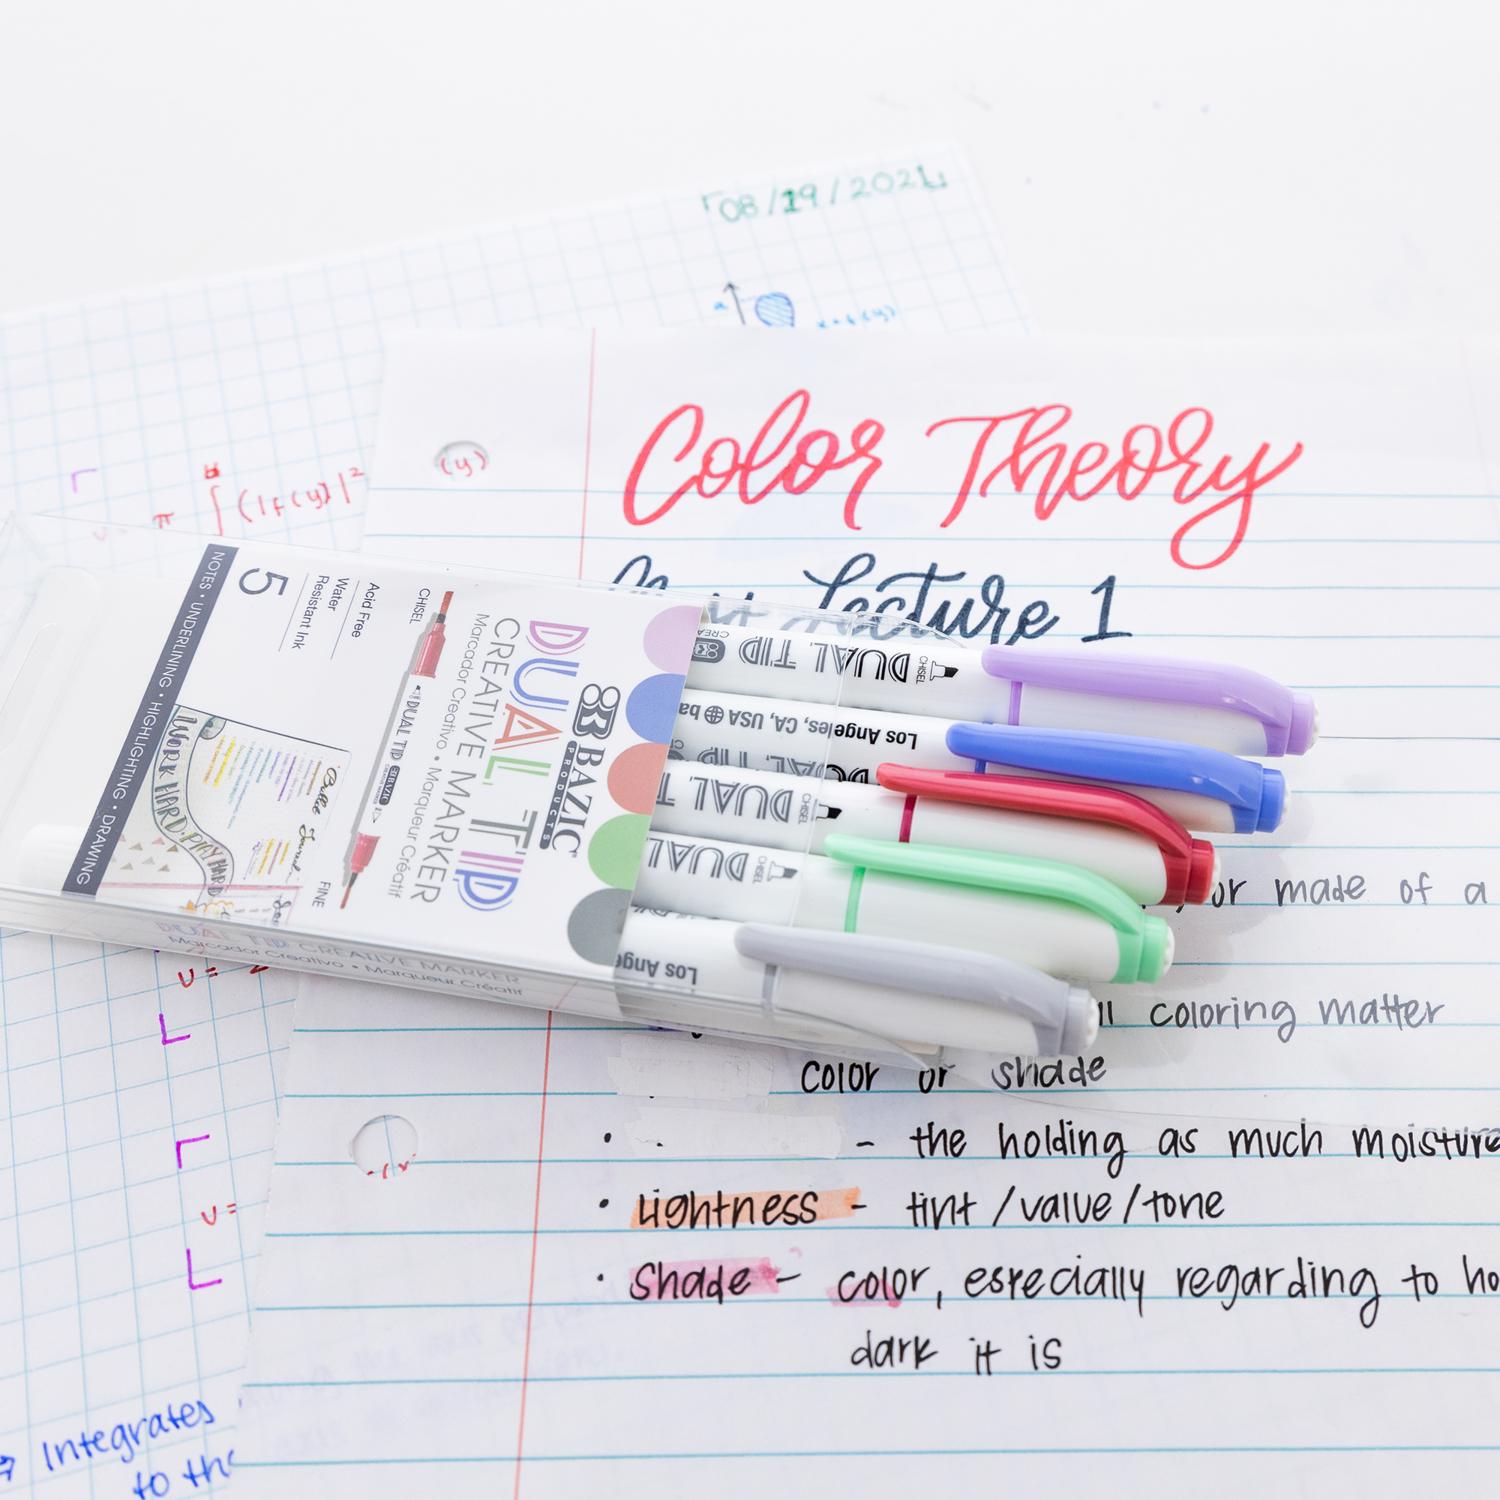 08/19/2021
Color Theory
Lecture 1
(y)
π ∫ (|f(y)|²
NOTES • UNDERLINING • HIGHLIGHTING • DRAWING
5
Acid Free
Water
Resistant Ink
CHISEL
DUAL TIP
FINE
WORK HARD PLAY HARD
BAZIC
PRODUCTS
DUAL TIP
CREATIVE MARKER
Marcador Creativo • Marqueur Créatif
DUAL TIP CREATIVE MARKER
Marcador Creativo • Marqueur Créatif
CHISEL DUAL TIP
Los Angeles, CA, USA
DUAL TIP
CHISEL DUAL T
CHISEL DUAL
Los Ange
or made of a
coloring matter
color or shade
- the holding as much moisture
• Lightness - tint / value / tone
• Shade - color, especially regarding to ho
dark it is
υ =
υ =
Integrates
to the